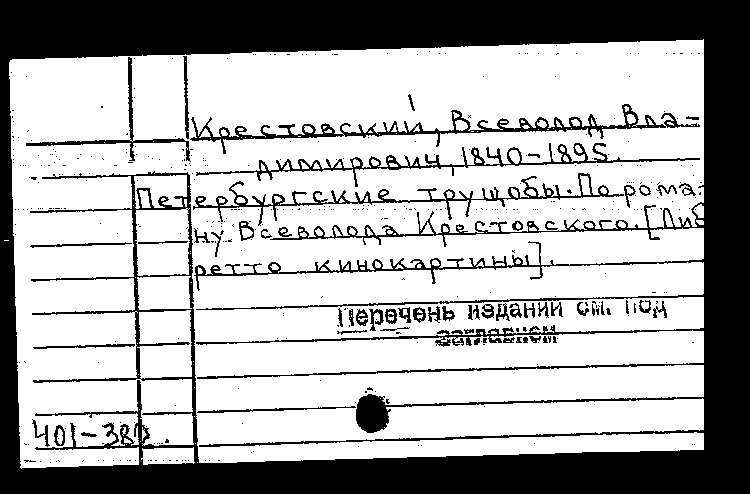 Крестовский, Всеволод Вла-
димирович, 1840-1895.
Петербургские трущобы. По рома-
ну Всеволода Крестовского. [Либ
ретто кинокартины].
Перечень изданий см. под
заглавием
401-382.